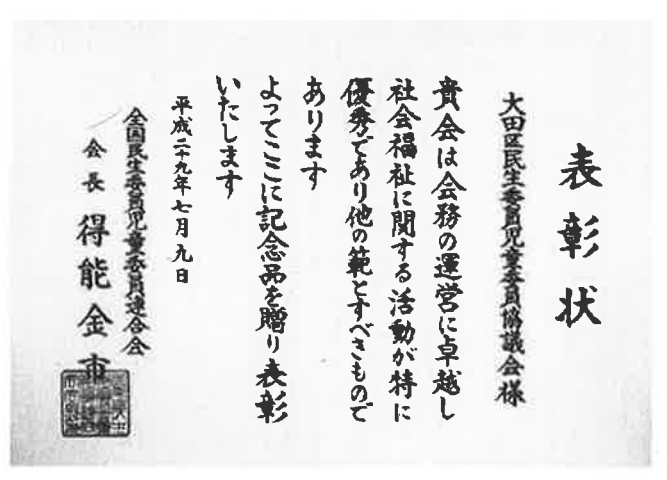 表彰状
大田区民生委員児童委員協議会様
貴会は会務の運営に卓越し
社会福祉に関する活動が特に
優秀であり他の範とすべきもので
あります
よってここに記念品を贈り表彰
いたします
平成二十九年七月九日
全国民生委員児童委員連合会
会長 得能金市